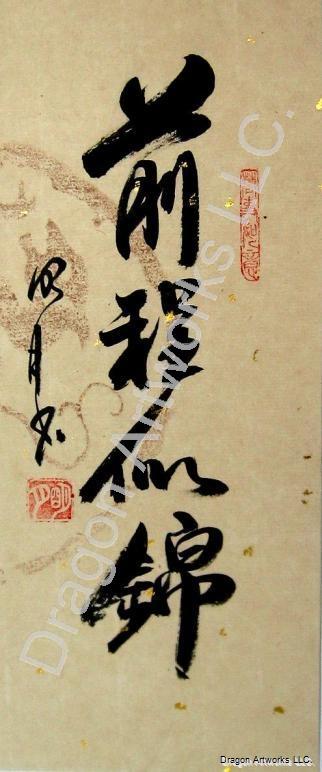 前程似錦
明月书
Dragon Artworks LLC.
Dragon Artworks LLC.